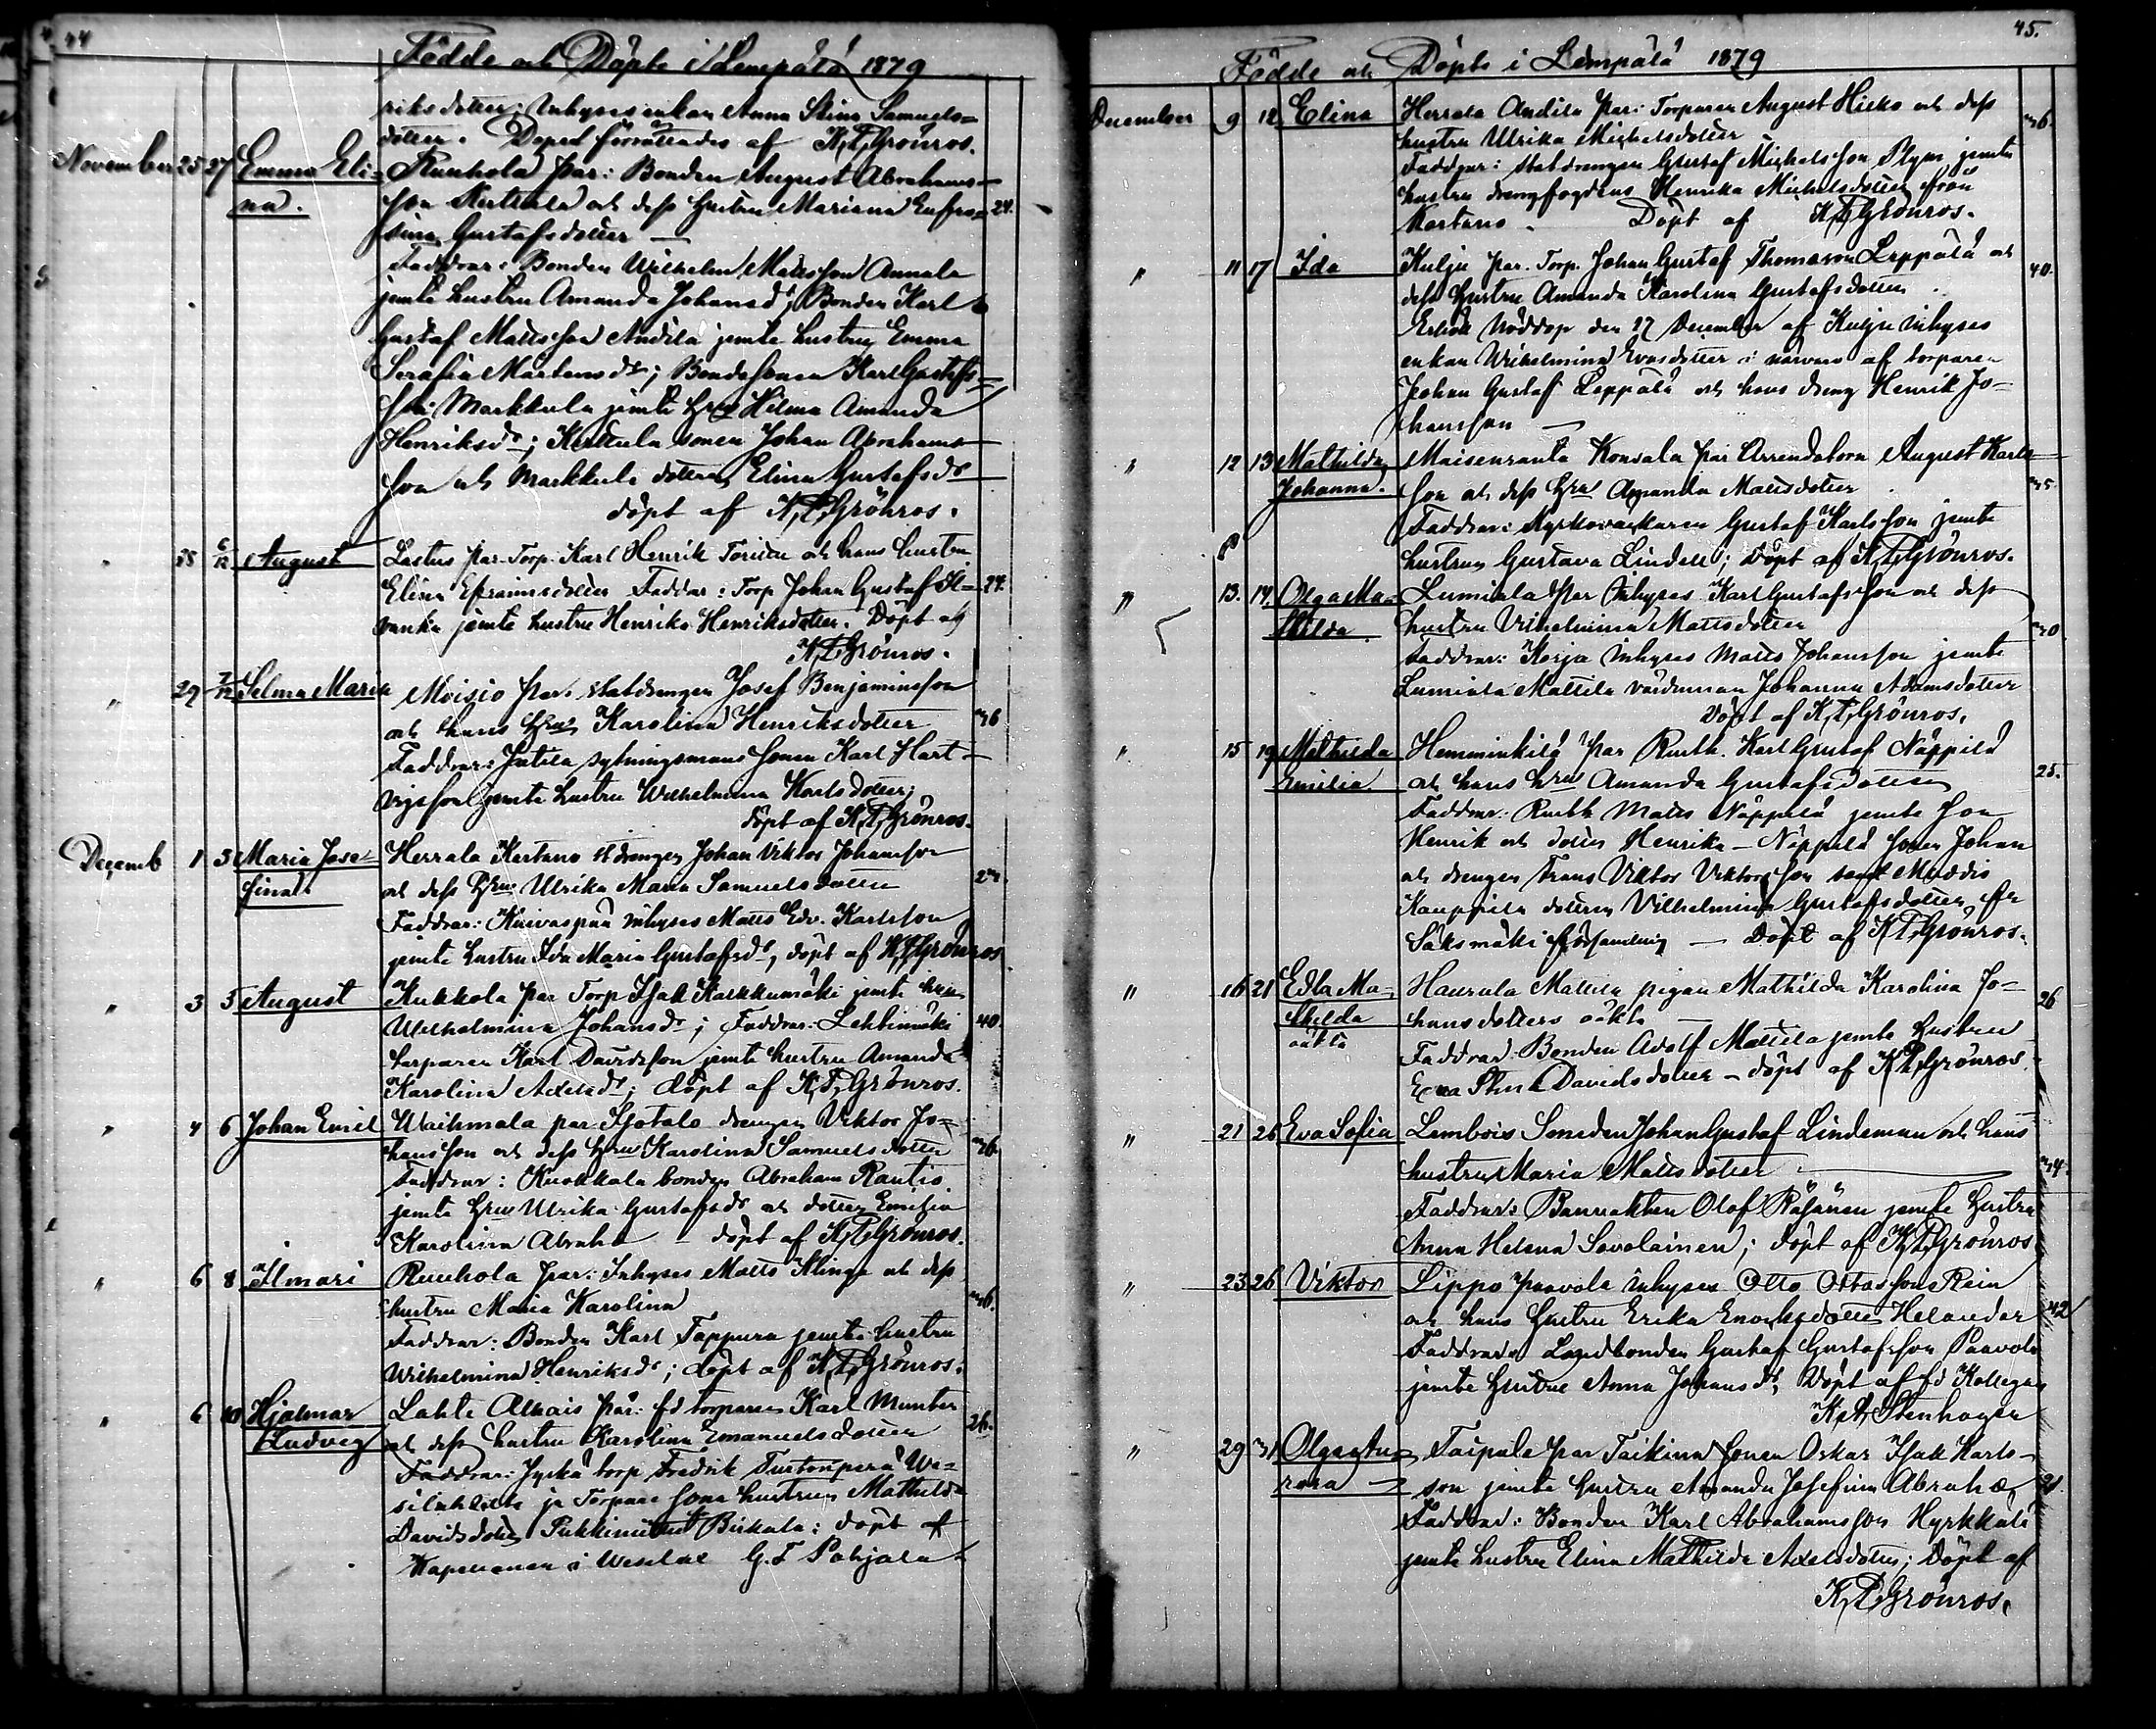 44
Födde och Döpte i Lempälä 1879
riksdotter; Inhyses enkan Anna Stina Samuels-
dotter. Dopet förrättades af K,T,Grönros.
November 25 27 Emma Eli- Kuuhola par: Bonden August Abrahams-
na. son Kerttula och dess hustru Mariana Eufro- 24.
sina Gustafsdotter —
Faddrar: Bonden Wilhelm Mattsson Annala
jemte hustru Amanda Johansdr; Bonden Karl
Gustaf Mattsson Andila jemte hustru Emma
Serafia Mårtensdr; Bondesonen Karl Gustafs-
son Markkula jemte hru Hilma Amanda
Henriksdr; Kerttula sonen Johan Abrahams-
son och Markkula dottren Elina Gustafsdr
döpt af K,T,Grönros.
" 28 6/12 August Lastus par. Torp. Karl Henrik och hans hustru
Elina Efraimsdotter Faddar: Torp Johan Gustaf 24.
jemte hustru Henrika Henriksdotter. Döpt af
K,T,Grönros.
" 29 7/12 Selma Maria Moisio par. statdrengen Josef Benjaminsson
och hans hru Karolina Henriksdotter 36
Faddrar: Jutila sytningsmans sonen Karl Hart-
vigsson jemte hustru Wilhelmina Karlsdotter;
döpt af K,T,Grönros.
Decemb 1 3 Maria Jose- Herrala Kertano st drengen Johan Viktor Johansson
fina. och dess hru Ulrika Maria Samuelsdotter 23
Faddrar: Kuivaspää inhyses Matts Edv. Karlsson
jemte hustru Ida Maria Gustafsdr, döpt af K,T,Grönros
" 3 5 August Kukkola par Torp Isak Kalkkumäki jemte hru
Wilhelmina Johansdr; Faddrar: Lehtimäki 40
torparen Karl Davidsson jemte hustru Amanda
Karolina Axelsdr; döpt af K,T,Grönros.
" 4 6 Johan Emil Waihmala par. Isotalo drengen Viktor Jo-
hansson och dess hru Karolina Samuelsdotter 36.
Faddrar: Kuokkala bonden Abraham Rautio
jemte hru Ulrika Gustafsdr och dotter Emilia
Karolina Abrahs — döpt af K,T,Grönros.
" 6 8 Ilmari Kuuhola par: Inhyses Matts Klinga och dess
hustru Maria Karolina 36.
Faddrar: Bonden Karl Tappura jemte hustru
Wilhelmina Henriksdr; döpt af K,T,Grönros.
" 6 10 Hjalmar Lahti Alhais par: fd torparen Karl Munter
Ludvig och dess hustru Karolina Emanuelsdotter 26.
Faddrar: torp Fredrik
Torpare sone hustrun Mathilda
Davidsdotter Birkala: döpt af
Kapellanen i Wesilax G. F Pohjala
45.
Födde och Döpte i Lempälä 1879
December 9 12 Elina Herrala Andila par: Torparen August Hisko och dess 36.
hustru Ulrika Michelsdotter
Faddrar: statdrengen Gustaf Michelsson Plym, jemte
hustru drengfogdens Henrika Michelsdotter från
Kertano. Döpt af K,T,Grönros.
" 11 17 Ida Kulju par. Torp. Johan Gustaf Thomasson Leppälä och 40.
dess hustru Amanda Karolina Gustafsdotter.
Erhöll Nöddop den 17 December af Kulju inhyses
enkan Wilhelmina Evasdotter i närvaro af torparen
Johan Gustaf Leppälä och hans dreng Henrik Jo-
hansson —
" 12 13 Mathilda Maisenranta Konsala par Arrendatorn August Karls-
Johanna. son och dess hru Amanda Mattsdotter 35.
Faddrar: Kyrkovaktaren Gustaf Karlsson jemte
hustrun Gustava Lindell; döpt af K,T,Grönros.
" 13. 14. Olga Ma- Lumiala par Inhyses Karl Gustafsson och dess
thilda. hustru Vilhelmina Mattsdotter 30
Faddrar: Korja inhyses Matts Johansson jemte
Lumiala Mattila värdinnan Johanna Adamsdotter
Döpt af K,T,Grönros.
" 15 19 Mathilda Hemminkilä par Rusth. Karl Gustaf Näppilä
Emilia och hans hru Amanda Gustafsdotter 25.
Faddrar: Rusth Matts Näppilä jemte son
Henrik och dotter Henrika — Näppilä sonen Johan
och drengen Frans Viktor Viktorsson samt
Kauppila dottren Vilhelmina Gustafsdotter fr
Sääksmäki församling — Döpt af K,T,Grönros.
" 16 21 Edla Ma- Haurala Mattila pigan Mathilda Karolina Jo- 26
thilda hansdotters oäkta
oäkta Faddrar: Bonden Adolf Mattila jemte hustru
Eva Stina Davidsdotter — döpt af K,T,Grönros.
" 21 26 Eva Sofia Lembois Smeden Johan Gustaf Lindeman och hans
hustru Maria Mattsdotter — 34.
Faddrar: Banvakten Olof Räsänen jemte hustru
Anna Helena Savolainen; döpt af K,T,Grönros
" 23 26 Viktor Lippo Paavola inhyses Otto Ottosson Rein
och hans hustru Erika Enoksdotter Helander 42
Faddrar: Landbonden Gustaf Gustafsson Paavola
jemte hustru Anna Johansdr, Döpt af fd Kollegan
K,A,Stenhagen
" 29 31 Olga Au- Taipale par Taikina sonen Oskar Isak Karls-
rora — son jemte hustru Amanda Josefina Abrahs 21.
Faddrar: Bonden Karl Abrahamsson Hyrkkälä
jemte hustru Elina Mathilda Axelsdotter; döpt af
K,T,Grönros.